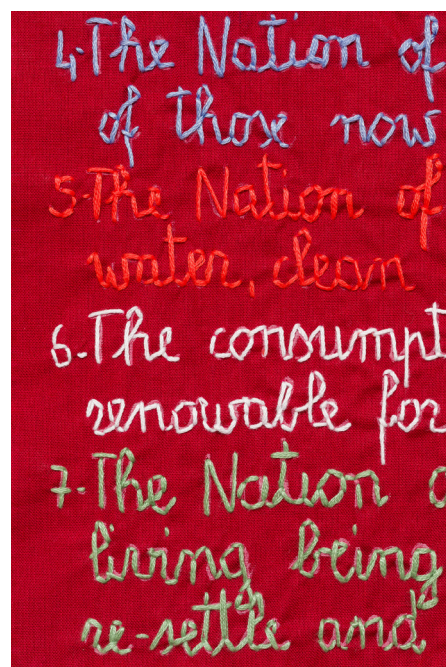 4.The Nation of
of those now
5.The Nation of
water, clean
6.The consumpt
renowable for
7.The Nation
living being
re-settle and